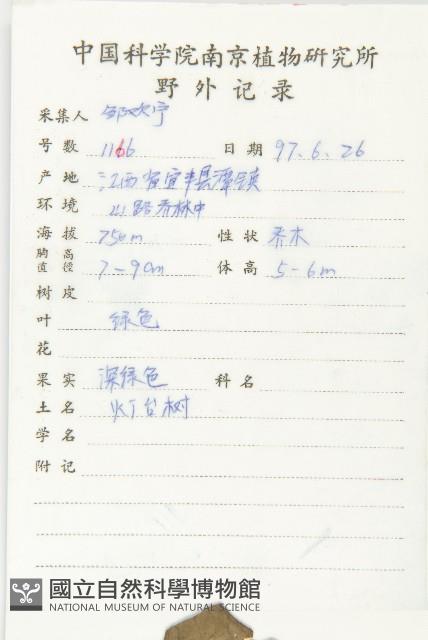 中国科学院南京植物研究所
野外记录
采集人 邹欢宁
号数 1166 日期 97.6.26
产地 江西省宜丰县潭镇
环境 山路乔林中
海拔 750m 性状 乔木
胸高直径 7-9cm 体高 5-6m
树皮
叶 绿色
花
果实 深绿色 科名
土名 灯台树
学名
附记
國立自然科學博物館
NATIONAL MUSEUM OF NATURAL SCIENCE